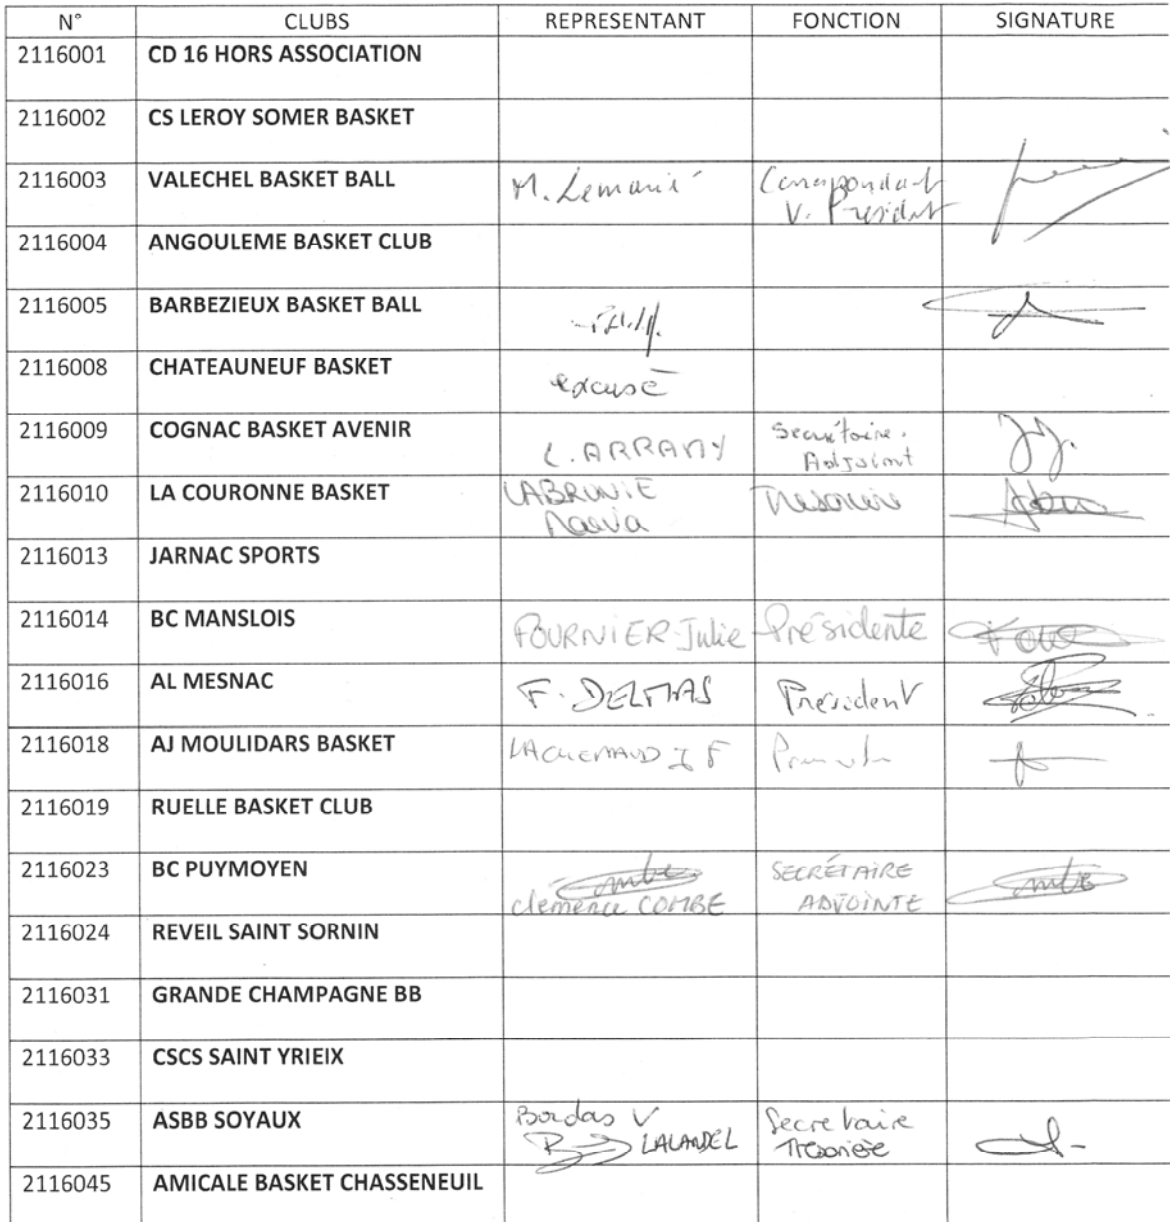 N° CLUBS REPRESENTANT FONCTION SIGNATURE
2116001 CD 16 HORS ASSOCIATION
2116002 CS LEROY SOMER BASKET
2116003 VALECHEL BASKET BALL M. Lemarié Correspondant
V. Président
2116004 ANGOULEME BASKET CLUB
2116005 BARBEZIEUX BASKET BALL
2116008 CHATEAUNEUF BASKET excusé
2116009 COGNAC BASKET AVENIR L. ARRAMY Secrétaire.
Adjoint
2116010 LA COURONNE BASKET LABRUNIE Tresorière
Maeva
2116013 JARNAC SPORTS
2116014 BC MANSLOIS FOURNIER Julie Présidente
2116016 AL MESNAC F. DELMAS Président
2116018 AJ MOULIDARS BASKET J F
2116019 RUELLE BASKET CLUB
2116023 BC PUYMOYEN SECRÉTAIRE
Clémence COMBE ADJOINTE
2116024 REVEIL SAINT SORNIN
2116031 GRANDE CHAMPAGNE BB
2116033 CSCS SAINT YRIEIX
2116035 ASBB SOYAUX Bordas V Secretaire
LALANDEL Trésorière
2116045 AMICALE BASKET CHASSENEUIL